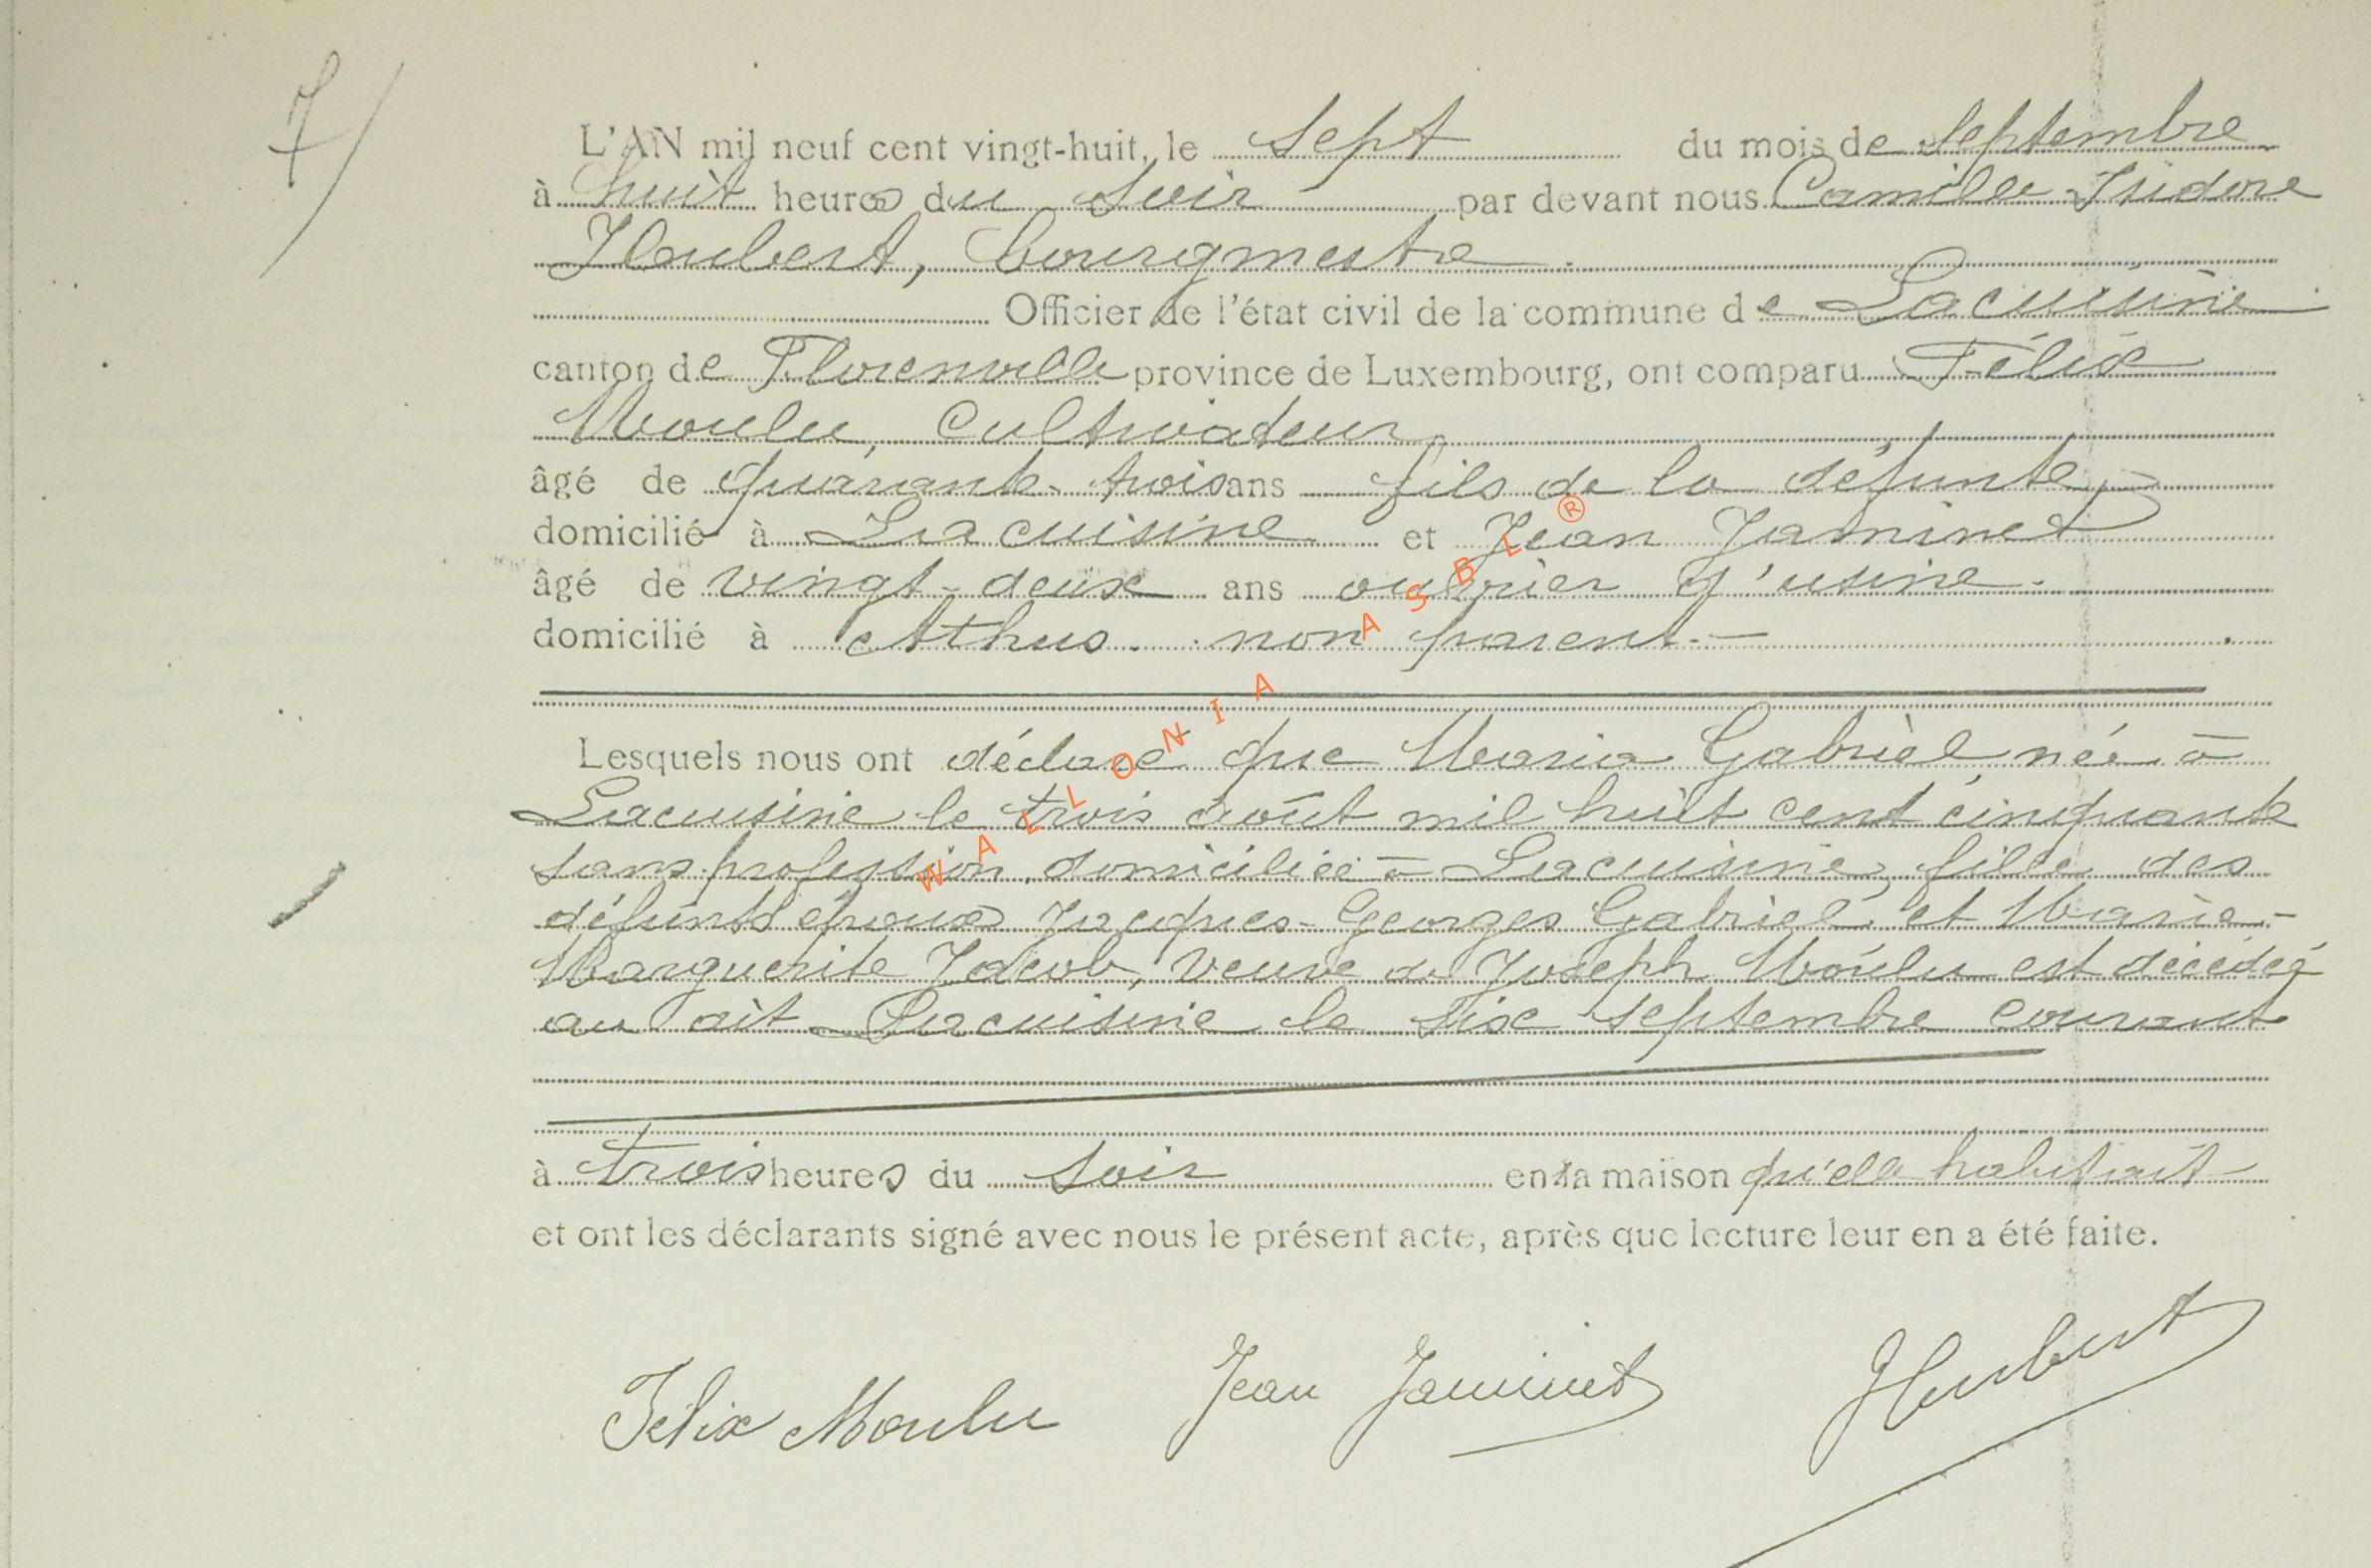 7/
L'AN mil neuf cent vingt-huit, le sept du mois de septembre
à huit heures du soir par devant nous Camille Isidore
Hubert, bourgmestre
Officier de l'état civil de la commune de Lacuisine
canton de Florenville province de Luxembourg, ont comparu Félix
Moulu, cultivateur,
âgé de quarante-trois ans fils de la défunte,
domicilié à Lacuisine et Jean Jaminet
âgé de vingt-deux ans ouvrier d'usine
domicilié à Athus non parent.
Lesquels nous ont déclaré que Maria Gabriel, née à
Lacuisine le trois août mil huit cent cinquante
sans profession, domiciliée à Lacuisine, fille des
défunts époux Jacques-Georges Gabriel et Marie-
Marguerite Jacob, veuve de Joseph Moulu est décédée
au dit Lacuisine le six septembre courant
à trois heures du soir en la maison qu'elle habitait
et ont les déclarants signé avec nous le présent acte, après que lecture leur en a été faite.
Felix Moulu Jean Jaminet Hubert
WALLONIA ASBL ®